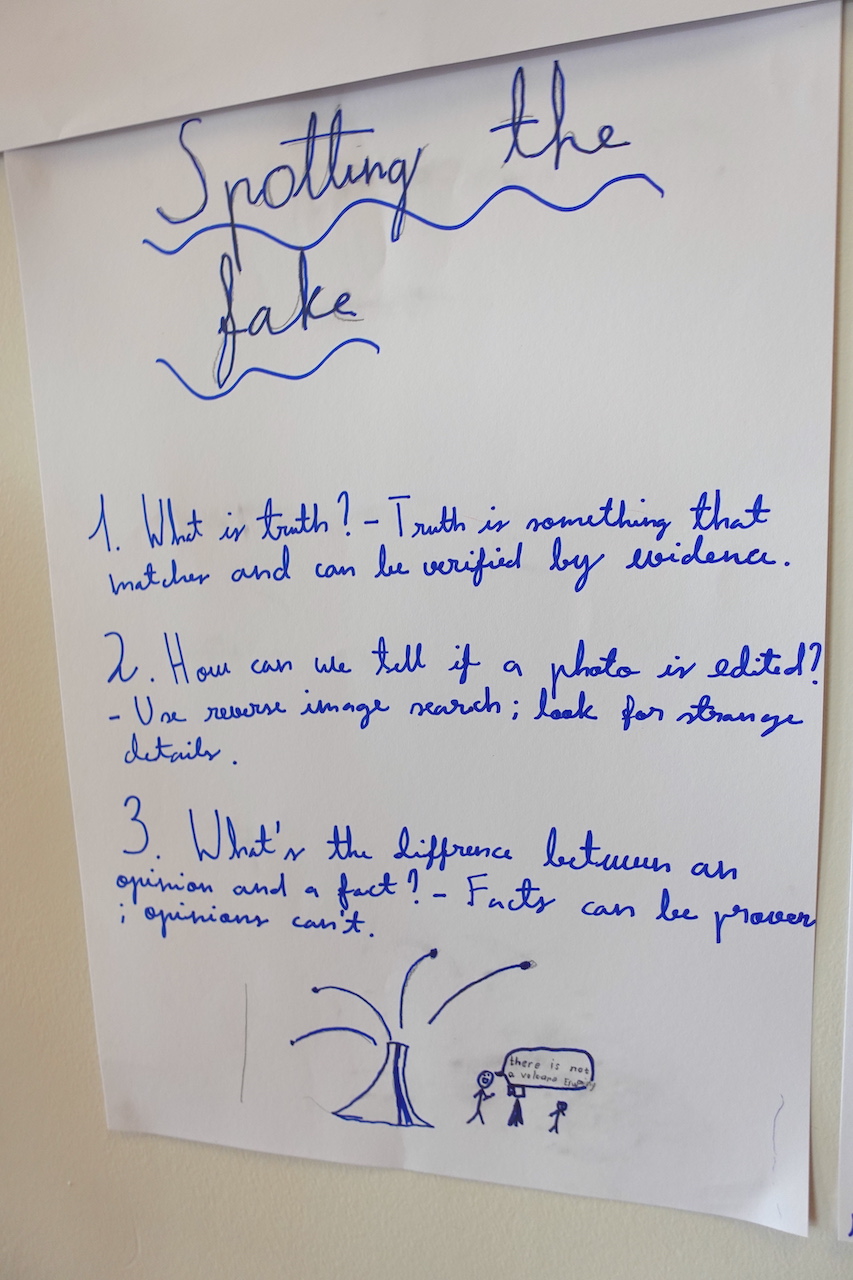 Spotting the
fake
1. What is truth? - Truth is something that
matches and can be verified by evidence.
2. How can we tell if a photo is edited?
- Use reverse image search; look for strange
details.
3. What's the diffrence between an
opinion and a fact? - Facts can be proven
; opinions can't.
there is not
a volcano